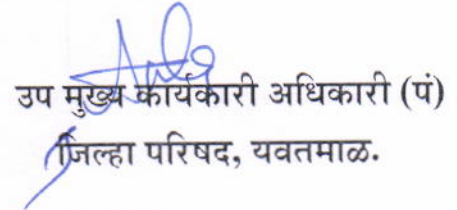 उप मुख्य कार्यकारी अधिकारी (पं)
जिल्हा परिषद, यवतमाळ.